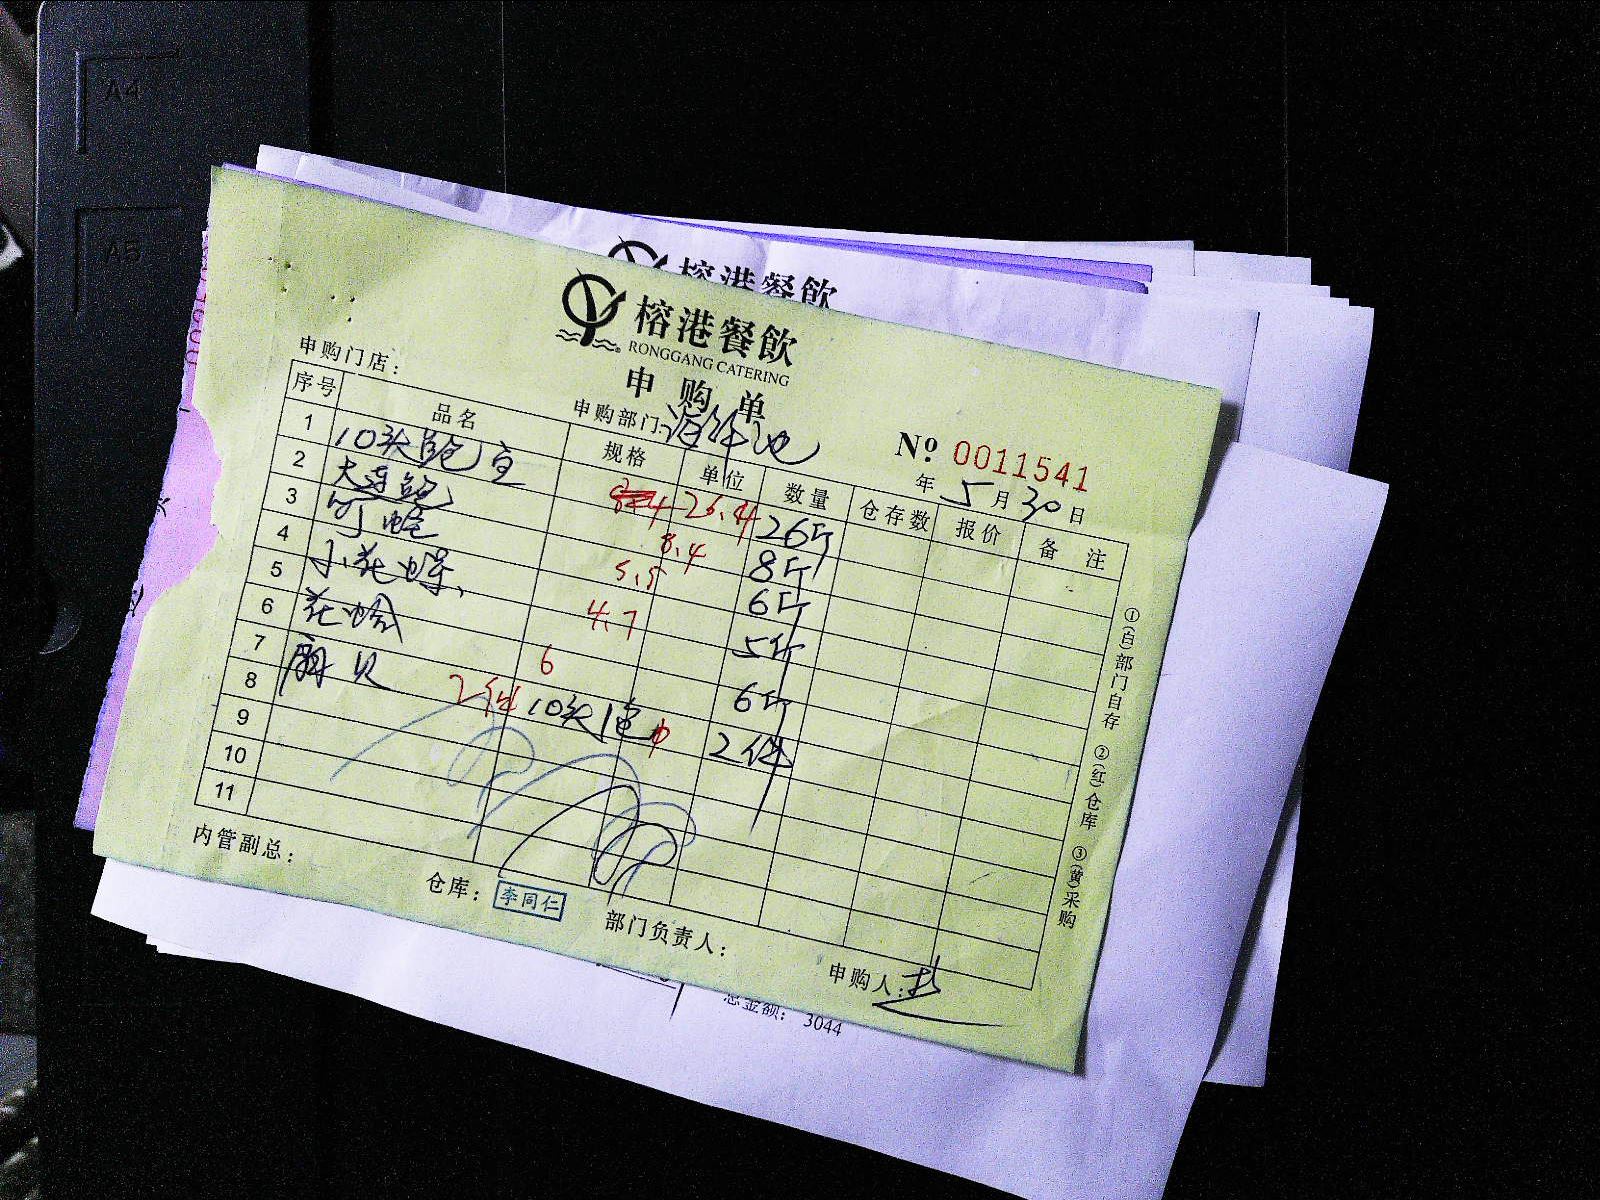 A4
A5
榕港餐飲
榕港餐飲
RONGGANG CATERING
申购单
申购门店：
申购部门：海鲜池
№ 0011541
年 5 月 30 日
序号 品名 规格 单位 数量 仓存数 报价 备注
1 10头鲍 26.4 26斤
2 大连鲍 8.4 8斤
3 5.5 6斤
4 小花螺 4.7 5斤
5 花蛤 6 6斤
6 扇贝 2件 10头 2件
7
8
9
10
11
①(白)部门自存 ②(红)仓库 ③(黄)采购
内管副总：
仓库： 李同仁
部门负责人：
申购人：
总金额： 3044